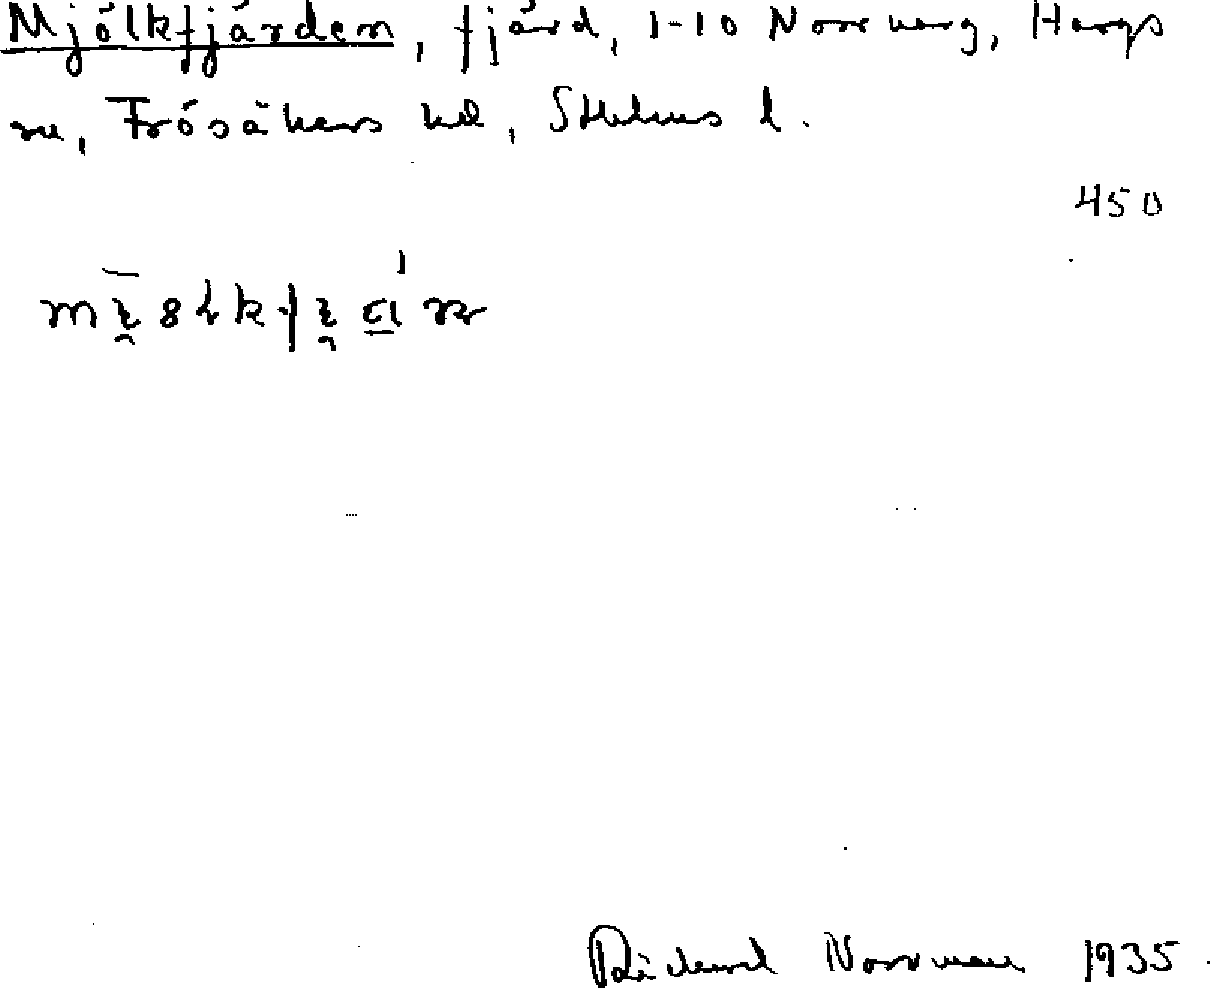 Mjölkfjärden, fjärd, 1-10 Norrverg, Hargs
sn, Frösåkers hd, Sthlms l.
450
Rickard Norrman 1935.